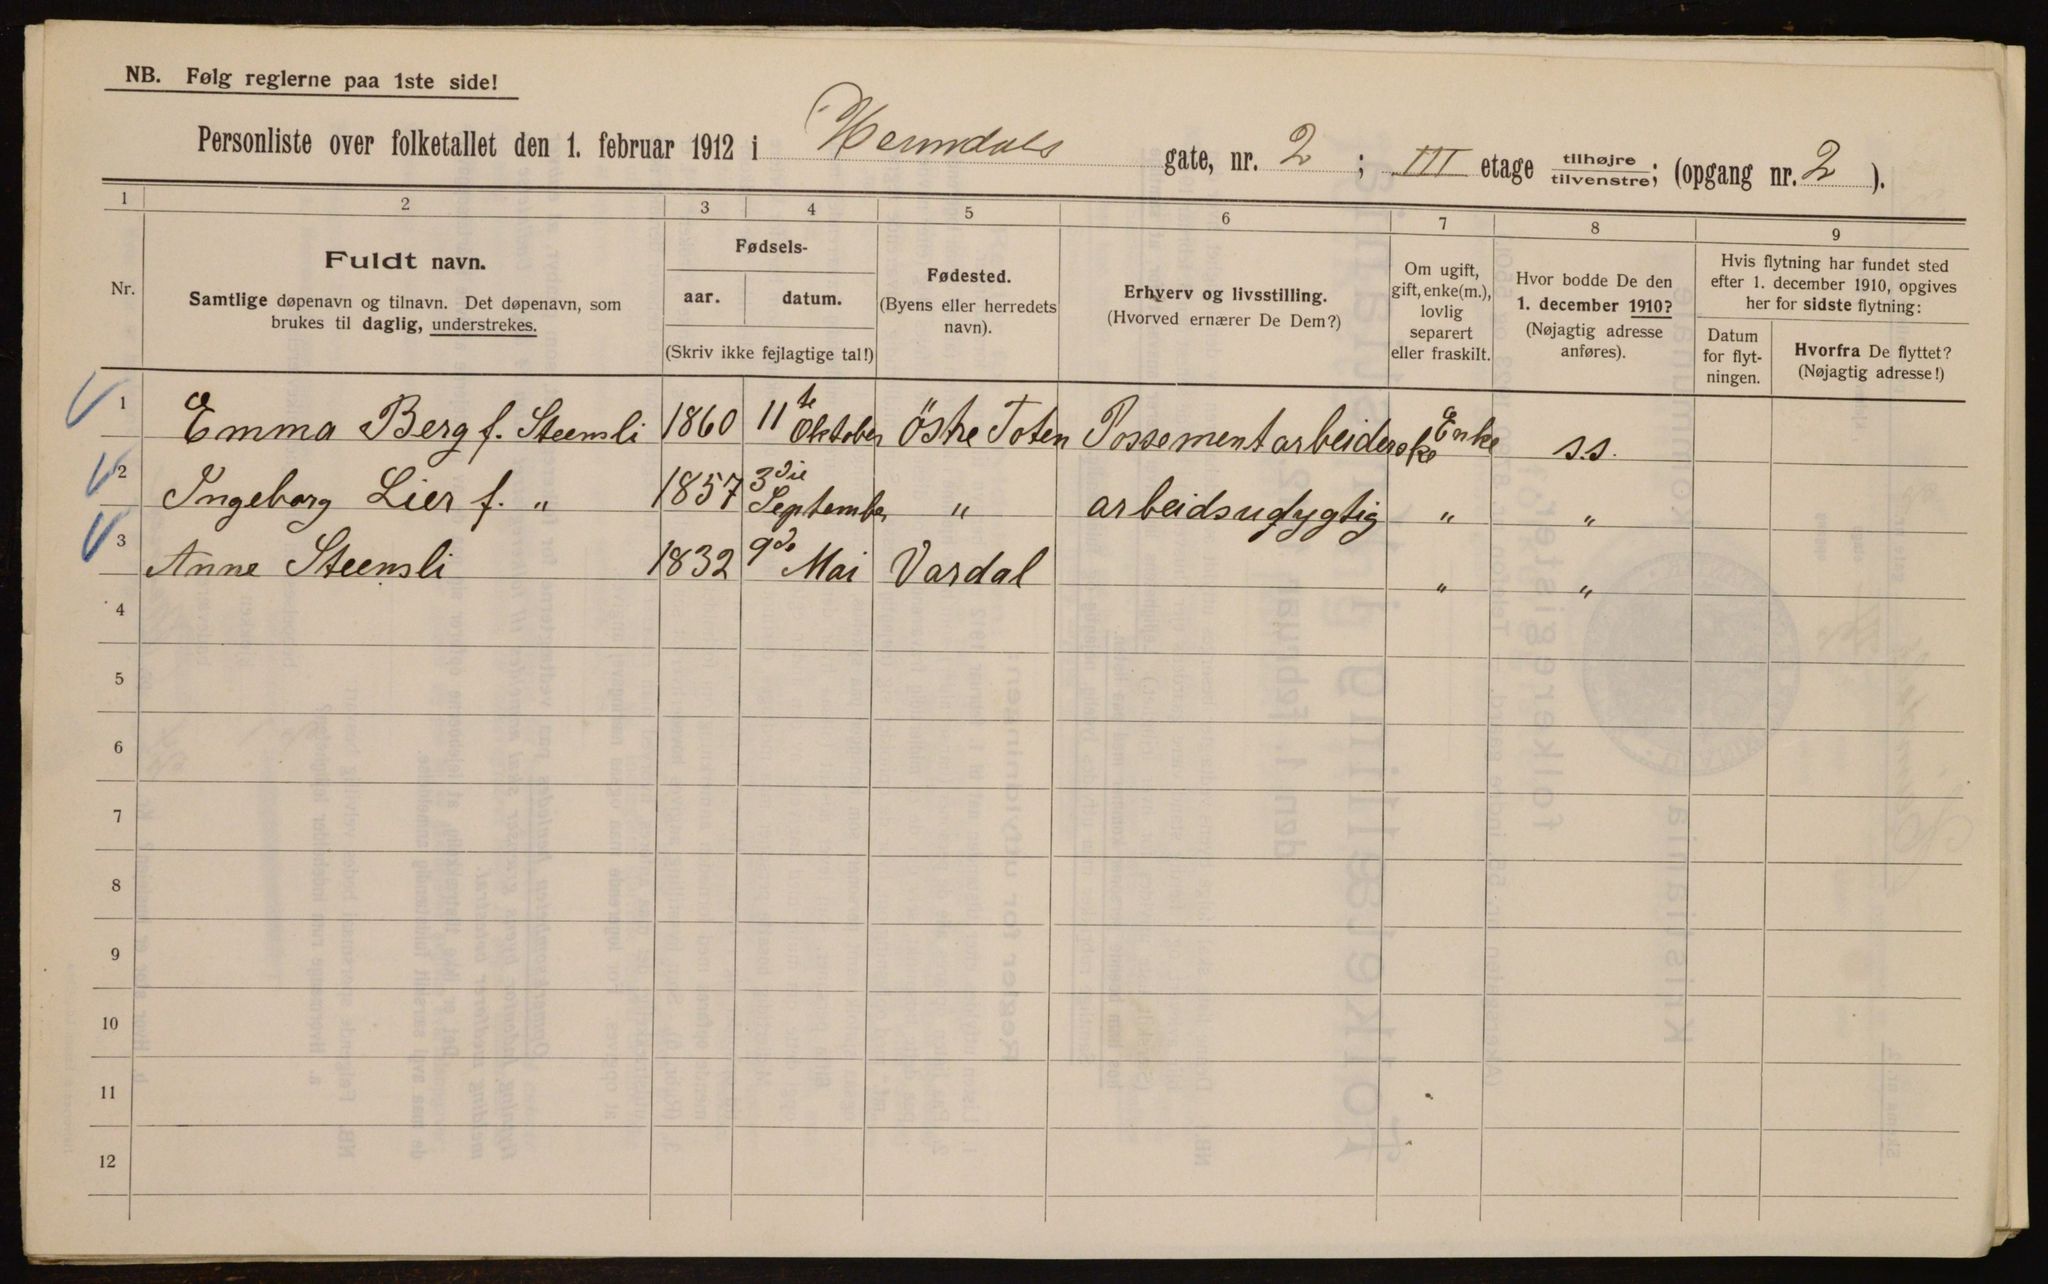 NB. Følg reglerne paa 1ste side!
Personliste over folketallet den 1. februar 1912 i Herundals gate, nr. 2; III etage tilhøjre tilvenstre; (opgang nr. 2 ).
1 2 3 4 5 6 7 8 9
Nr.
Fuldt navn.
Samtlige døpenavn og tilnavn. Det døpenavn, som
brukes til daglig, understrekes.
Fødsels-
aar. datum.
(Skriv ikke fejlagtige tal!)
Fødested.
(Byens eller herredets
navn).
Erhverv og livsstilling.
(Hvorved ernærer De Dem?)
Om ugift,
gift, enke(m.),
lovlig
separert
eller fraskilt.
Hvor bodde De den
1. december 1910?
(Nøjagtig adresse
anføres).
Hvis flytning har fundet sted
efter 1. december 1910, opgives
her for sidste flytning:
Datum
for flyt-
ningen.
Hvorfra De flyttet?
(Nøjagtig adresse!)
1 Emma Berg f. Steensli 1860 11te Oktober östre Toten Possementarbeiderske Enke s.s.
2 Ingeborg Lier f. " 1857 3die September " arbeidsudygtig " "
3 Anne Steensli 1832 9de Mai Vardal " "
4
5
6
7
8
9
10
11
12